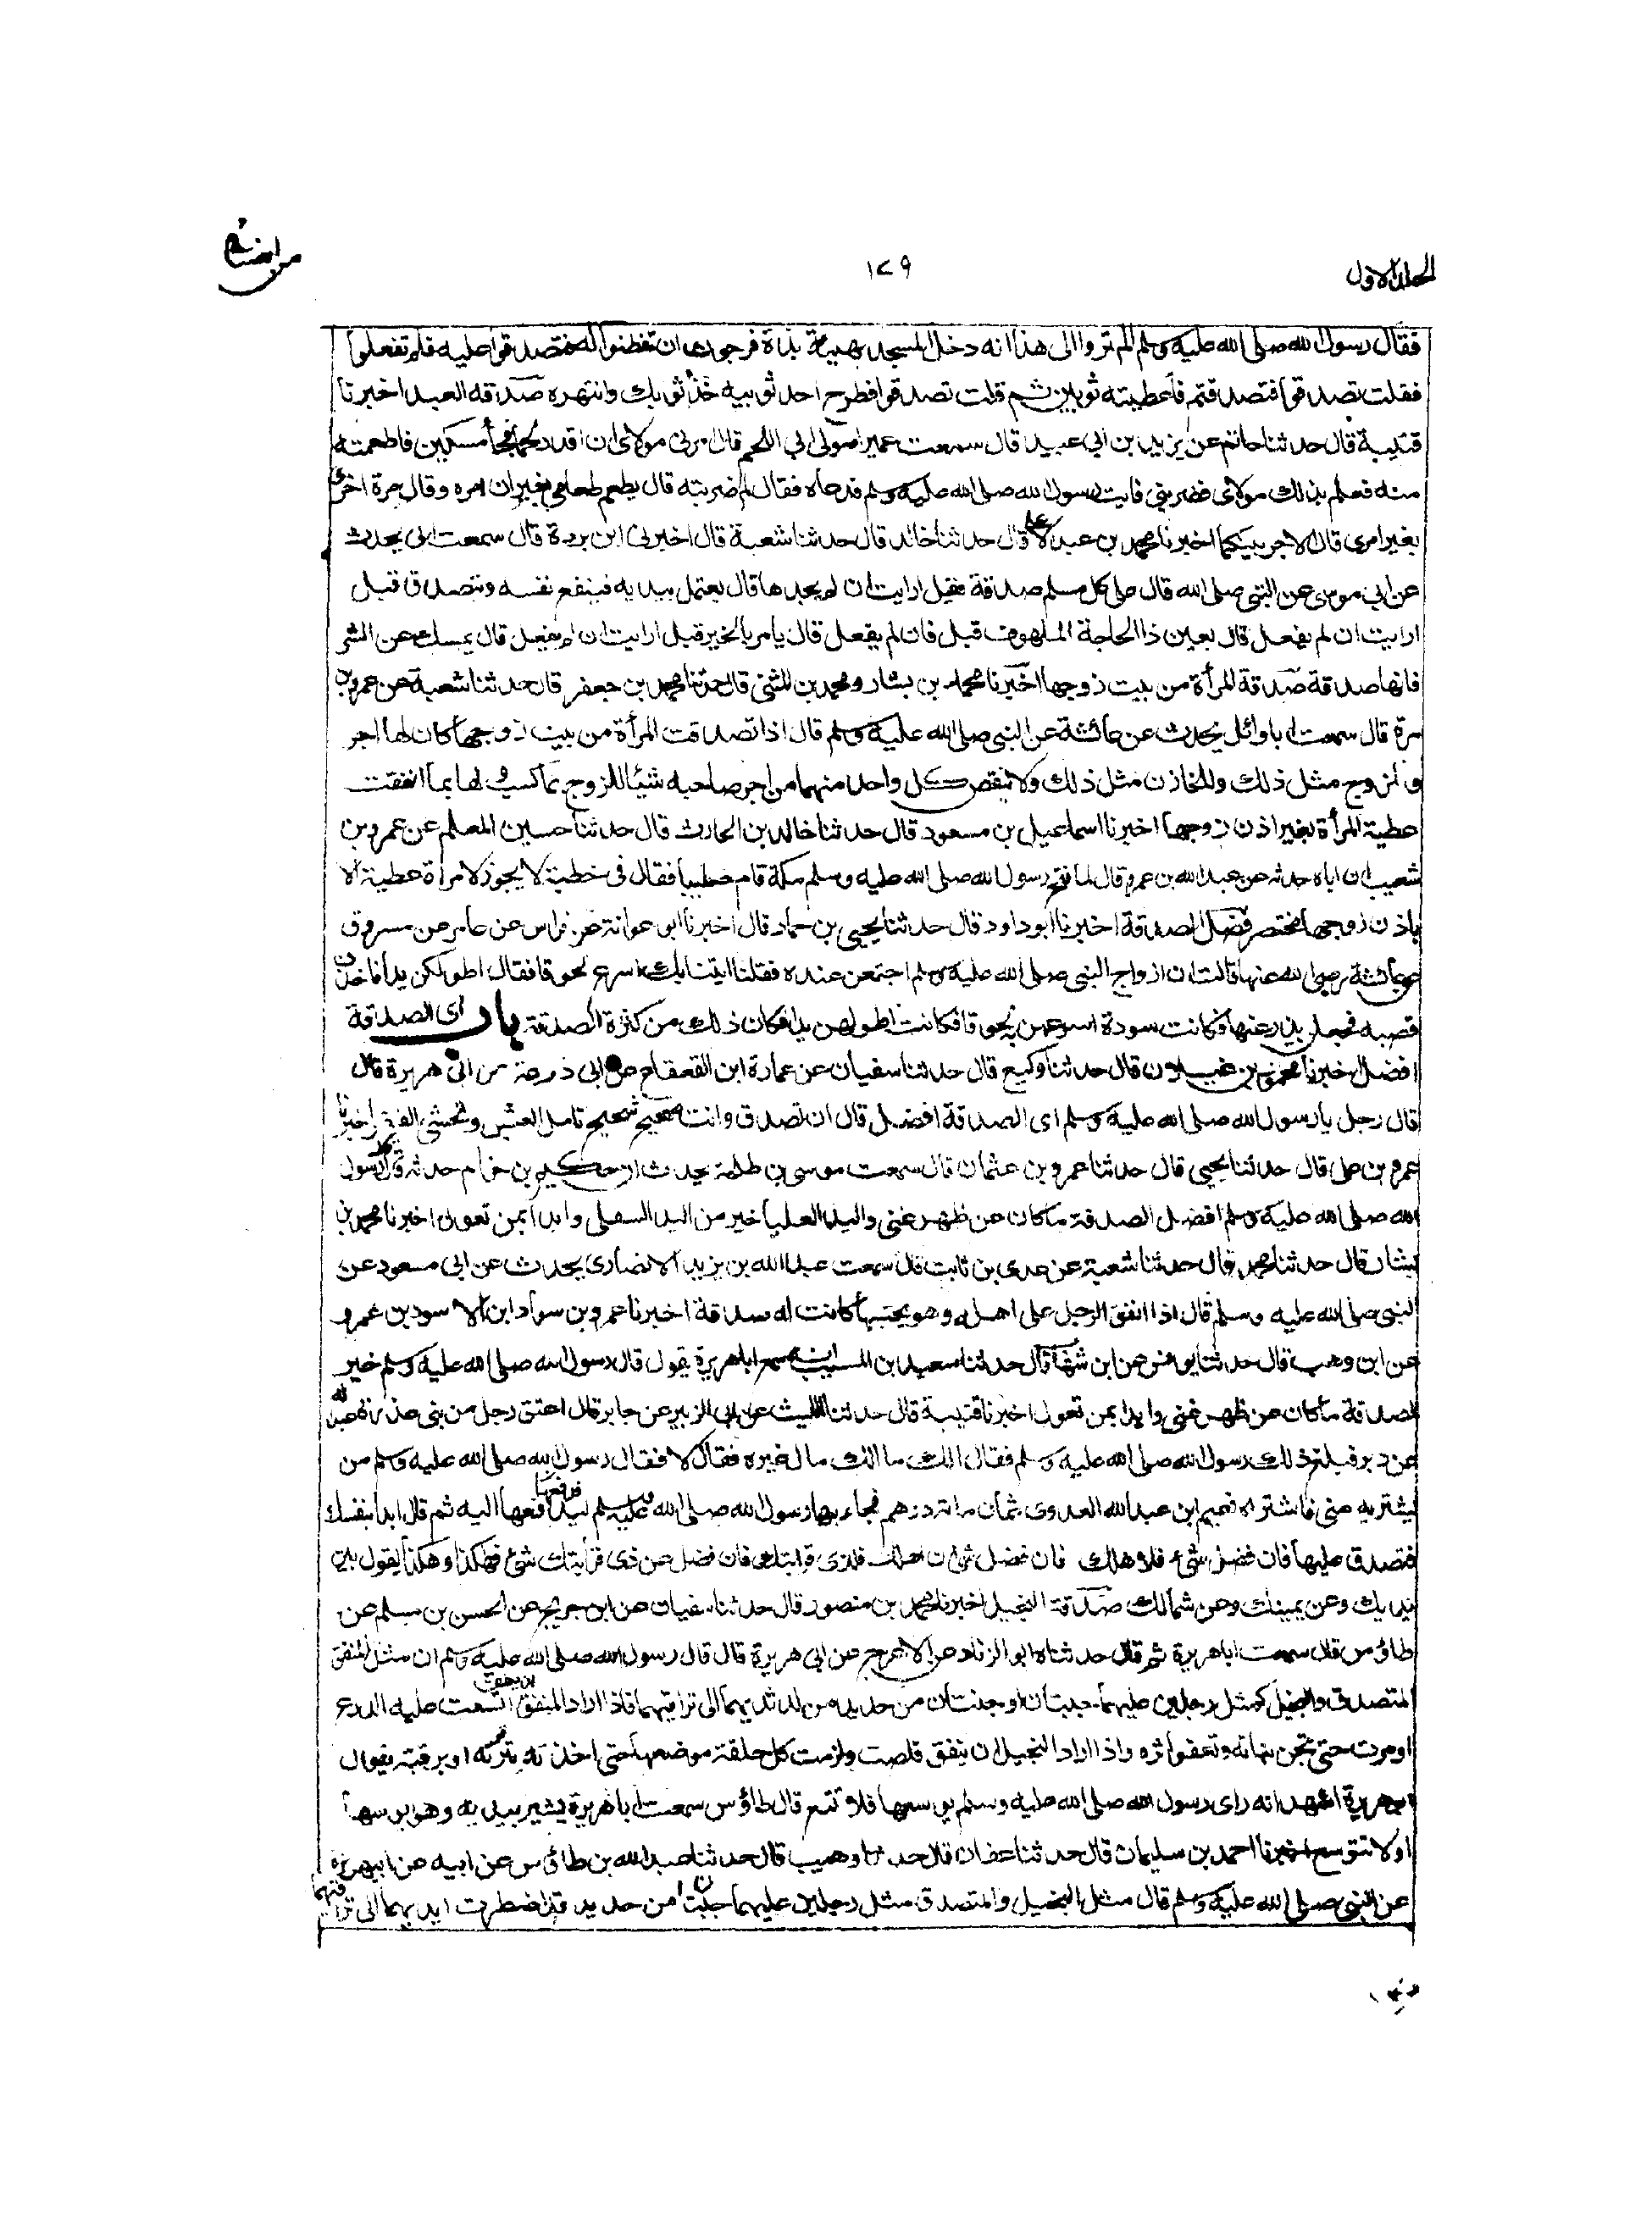 الجلد الاول
١٤٩
من النسائي
فقال رسول الله صلى الله عليه وسلم الم تروا الى هذا انه دخل المسجد بهيئة بذة فرجوت ان تفطنوا له فتصدقوا عليه فلم تفعلوا
فقلت تصدقوا فتصدقتم فاعطيته ثوبين ثم قلت تصدقوا فطرح احد ثوبيه خذ ثوبك وانتهره صدقة العبد اخبرنا
قتيبة قال حدثنا حاتم عن يزيد بن ابي عبيد قال سمعت عميرا مولى ابي اللحم قال امرني مولاى ان اقدد لحما فجأ مسكين فاطعمته
منه فعلم بذلك مولاى فضربني فاتيت رسول الله صلى الله عليه وسلم فدعاه فقال لم ضربته قال يطعم طعامي بغير ان امره وقال مرة اخرى
بغير امرى قال الاجر بينكما اخبرنا محمد بن عبد الاعلى قال حدثنا خالد قال حدثنا شعبة قال اخبرني ابن بردة قال سمعت ابى يحدث
عن ابي موسى عن النبي صلى الله قال على كل مسلم صدقة فقيل ارايت ان لم يجدها قال يعتمل بيديه فينفع نفسه ويتصدق قيل
ارايت ان لم يفعل قال يعين ذا الحاجة الملهوف قيل فان لم يفعل قال يامر بالخير قيل ارايت ان لم يفعل قال يمسك عن الشر
فانها صدقة صدقة المرأة من بيت زوجها اخبرنا محمد بن بشار ومحمد بن المثنى قال حدثنا محمد بن جعفر قال حدثنا شعبة عن عمرو بن
مرة قال سمعت ابا وائل يحدث عن عائشة عن النبي صلى الله عليه وسلم قال اذا تصدقت المرأة من بيت زوجها كان لها اجر
وللزوج مثل ذلك وللخازن مثل ذلك ولا ينقص كل واحد منهما من اجر صاحبه شيئا للزوج بما كسب ولها بما انفقت
عطية المرأة بغير اذن زوجها اخبرنا اسماعيل بن مسعود قال حدثنا خالد بن الحارث قال حدثنا حسين المعلم عن عمرو بن
شعيب ان اباه حدثه عن عبد الله بن عمرو قال لما فتح رسول الله صلى الله عليه وسلم مكة قام خطيبا فقال فى خطبته لا يجوز لامراة عطية الا
باذن زوجها مختصر فضل الصدقة اخبرنا ابو داود قال حدثنا يحيى بن حماد قال اخبرنا ابو عوانة عن فراس عن عامر عن مسروق
عن عائشة رضى الله عنها قالت ان ازواج النبي صلى الله عليه وسلم اجتمعن عنده فقلنا ايتنا بك اسرع لحوقا فقال اطولكن يدا فاخذن
قصبه فجعلن يذرعنها فكانت سودة اسرعهن به لحوقا فكانت اطولهن يدا فكان ذلك من كثرة الصدقة باب اى الصدقة
افضل اخبرنا محمود بن غيلان قال حدثنا وكيع قال حدثنا سفيان عن عمارة ابن القعقاع عن ابى زرعة عن ابى هريرة قال
قال رجل يا رسول الله صلى الله عليه وسلم اى الصدقة افضل قال ان تصدق وانت صحيح شحيح تامل العيش وتخشى الفقر اخبرنا
عمرو بن على قال حدثنا يحيى قال حدثنا عمرو بن عثمان قال سمعت موسى بن طلحة يحدث ان حكيم بن حزام حدثه قال قال رسول
الله صلى الله عليه وسلم افضل الصدقة ما كان عن ظهر غنى واليد العليا خير من اليد السفلى وابدا بمن تعول اخبرنا محمد بن
بشار قال حدثنا محمد قال حدثنا شعبة عن عدى بن ثابت قال سمعت عبد الله بن يزيد الانصارى يحدث عن ابى مسعود عن
النبي صلى الله عليه وسلم قال اذا انفق الرجل على اهله وهو يحتسبها كانت له صدقة اخبرنا عمرو بن سواد ابن الاسود بن عمرو
عن ابن وهب قال حدثنا يونس عن ابن شهاب قال حدثنا سعيد بن المسيب انه سمع ابا هريرة يقول قال رسول الله صلى الله عليه وسلم خير
الصدقة ما كان عن ظهر غنى وابدا بمن تعول اخبرنا قتيبة قال حدثنا الليث عن ابى الزبير عن جابر قال اعتق رجل من بنى عذرة عبدا له
عن دبر فبلغ ذلك رسول الله صلى الله عليه وسلم فقال الك مال غيره فقال لا فقال رسول الله صلى الله عليه وسلم من
يشتريه منى فاشتراه نعيم ابن عبد الله العدوى بثمان مائة درهم فجاء بها رسول الله صلى الله عليه وسلم فدفعها اليه ثم قال ابدأ بنفسك
فتصدق عليها فان فضل شئ فلاهلك فان فضل شئ عن اهلك فلذى قرابتك فان فضل عن ذى قرابتك شئ فهكذا وهكذا يقول بين
يديك وعن يمينك وعن شمالك صدقة البخيل اخبرنا محمد بن منصور قال حدثنا سفيان عن ابن جريج عن الحسن بن مسلم عن
طاؤس قال سمعت ابا هريرة ثم قال حدثناه ابو الزناد عن الاعرج عن ابى هريرة قال قال رسول الله صلى الله عليه وسلم ان مثل المنفق
المتصدق والبخيل كمثل رجلين عليهما جبتان او جنتان من حديد من لدن ثديهما الى تراقيهما فاذا اراد المنفق ان ينفق اتسعت عليه الدرع
او مرت حتى تجن بنانه وتعفو اثره واذا اراد البخيل ان ينفق قلصت ولزمت كل حلقة موضعها حتى اخذته بترقوته او برقبته يقول
ابو هريرة اشهد انه راى رسول الله صلى الله عليه وسلم يوسعها فلا تتسع قال طاؤس سمعت ابا هريرة يشير بيديه وهو يوسعها
ولا تتوسع اخبرنا احمد بن سليمان قال حدثنا عفان قال حدثنا وهيب قال حدثنا عبد الله بن طاؤس عن ابيه عن ابى هريرة
عن النبي صلى الله عليه وسلم قال مثل البخيل والمتصدق مثل رجلين عليهما جبتان من حديد قد اضطرت ايديهما الى تراقيهما